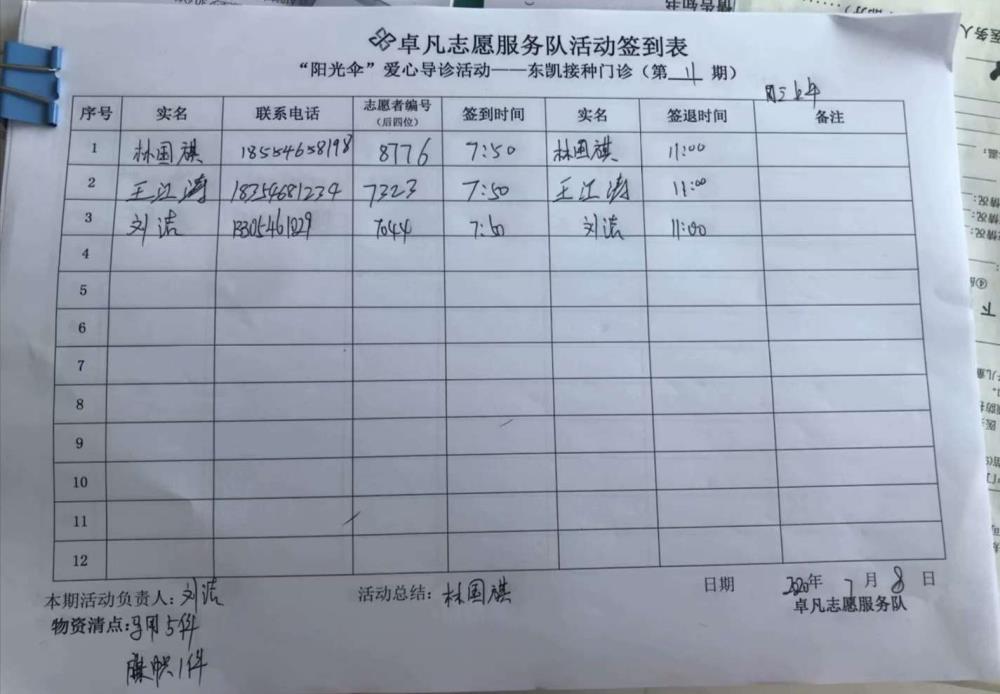 卓凡志愿服务队活动签到表
“阳光伞”爱心导诊活动——东凯接种门诊（第 11 期）
周三上午
序号 实名 联系电话 志愿者编号（后四位） 签到时间 实名 签退时间 备注
1 林国祺 18554658198 8776 7:50 林国祺 11:00
2 王江涛 18354681234 7323 7:50 王江涛 11:00
3 刘洁 7044 7:50 刘洁 11:00
4
5
6
7
8
9
10
11
12
本期活动负责人：刘洁 活动总结：林国祺 日期 2020年 7 月 8 日
物资清点：马甲5件 卓凡志愿服务队
旗帜1件